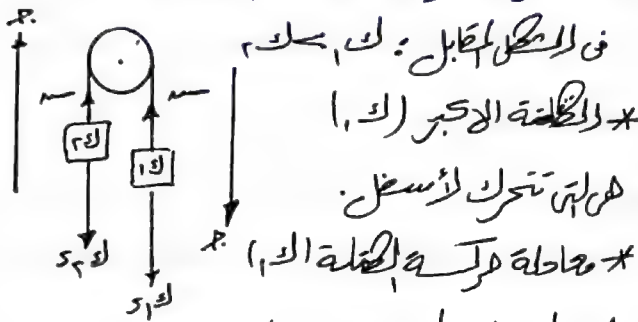 فى الشكل المقابل : ك١ > ك٢
* الكتلة الاكبر (ك١)
هى التى تتحرك لأسفل .
* معادلة حركة الكتلة (ك١)
جـ
جـ
سہ
سہ
ك٢
ك١
ك٢ء
ك١ء